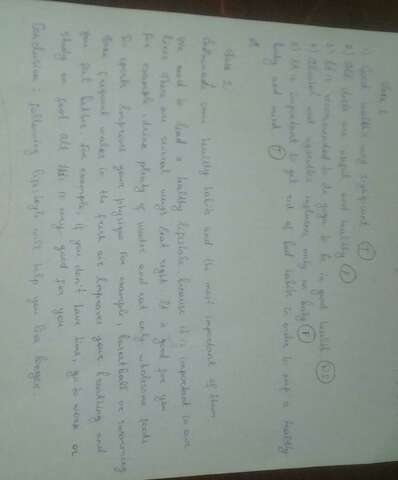 1) Good health is very important (T)
2) All diets are useful and healthy (F)
3) It is recommended to do yoga to be in good health (DS)
4) Alcohol and cigarettes influence only on body (F)
5) It is important to get rid of bad habits in order to keep a healthy
body and mind (T)
2
healthy habits and the most important of them
We need to lead a healthy lifestyle because it is important in our
lives. There are several ways Eat right. It is good for you
for example, drink plenty of water and eat only wholesome foods
Do sports. Improves your physique for example, basketball or swimming
frequent walks in the fresh air. Improves your breathing and
you feel better. For example, if you don't have time, go to work or
study on foot. All this is very good for you
Conclusion: following lifestyle will help you live longer